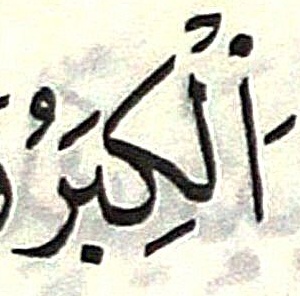 اَلْكِبَرُ